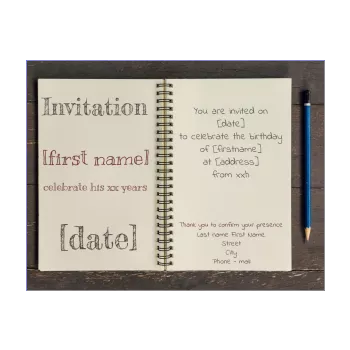 Invitation
[first name]
celebrate his xx years
[date]
You are invited on
[date]
to celebrate the birthday
of [firstname]
at [address]
from xxh
Thank you to confirm your presence
Last name First Name
Street
City
Phone - mail